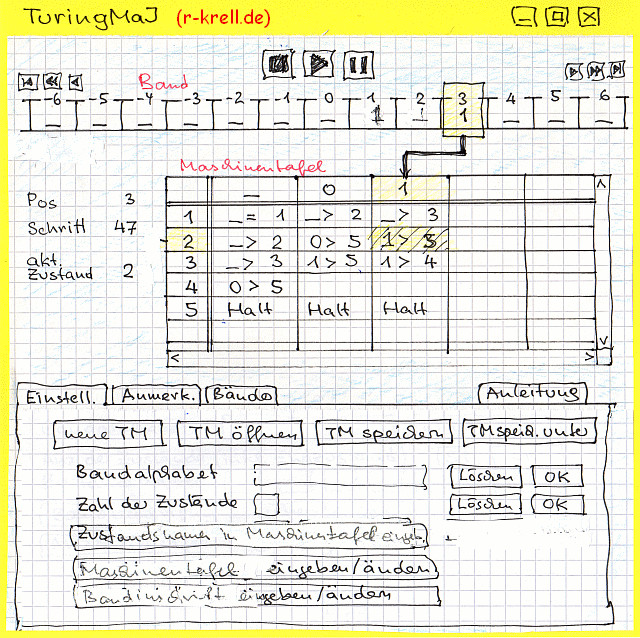 TuringMaJ (r-krell.de)
Band
-6 -5 -4 -3 -2 -1 0 1 2 3 4 5 6
_ _ _ _ _ _ _ 1 1 1 _ _ _
Maschinentafel
_ 0 1
Pos 3
Schritt 47
akt. Zustand 2
1 _= 1 _> 2 _> 3
2 _> 2 0> 5 1> 3
3 _> 3 1> 5 1> 4
4 0> 5
5 Halt Halt Halt
< >
Einstell. Anmerk. Bänder Anleitung
neue TM TM öffnen TM speichern TM speich. unter
Bandalphabet Löschen OK
Zahl der Zustände Löschen OK
Zustandsnamen in Maschinentafel eingeb.
Maschinentafel eingeben/ändern
Bandinschrift eingeben/ändern